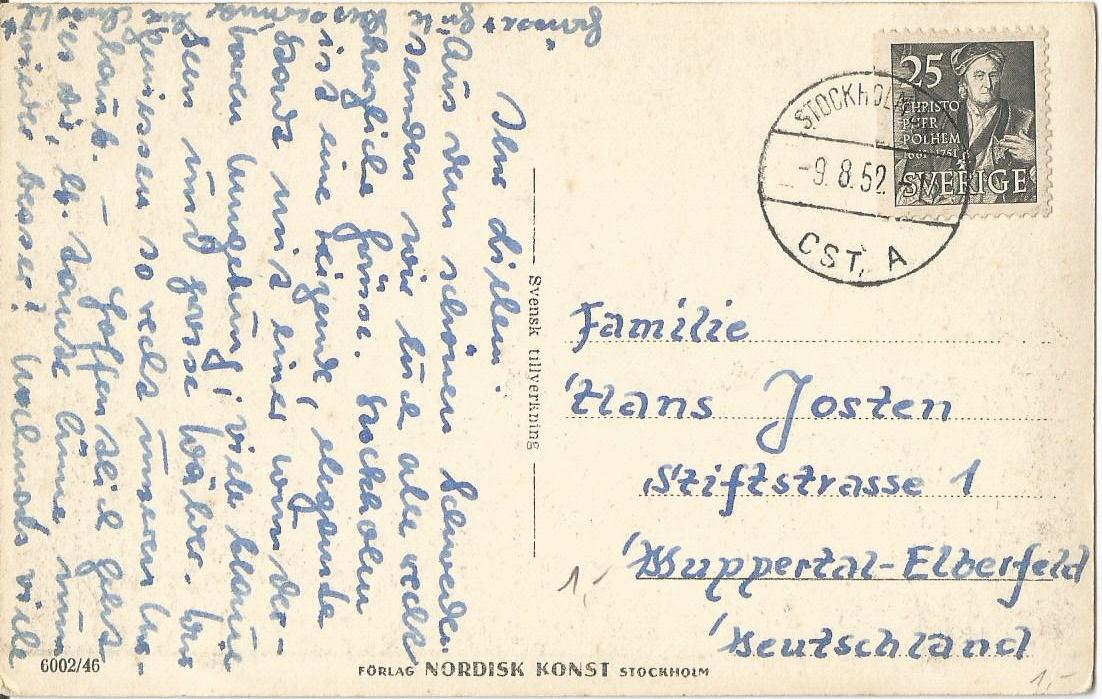 Ihr Lieben!
Aus dem schönen Schweden
senden wir Euch allen recht
herzliche Grüsse. Stockholm
ist eine reizende, elegante
Stadt mit einer wunder-
baren Umgebung, viele blaue
Seen und grosse Wälder. Wir
geniessen so recht unseren Ur-
laub. – Hoffentlich geht
es Dir, lb. Tante nun
wieder besser! Nochmals viele
Svensk tillverkning
25
CHRISTO
PHER
POLHEM
1661-1751
SVERIGE
STOCKHOLM
-9.8.52
ÖST. A
Familie
Hans Josten
Stiftstrasse 1
Wuppertal-Elberfeld
Deutschland
1,-
1,-
6002/46
FÖRLAG NORDISK KONST STOCKHOLM